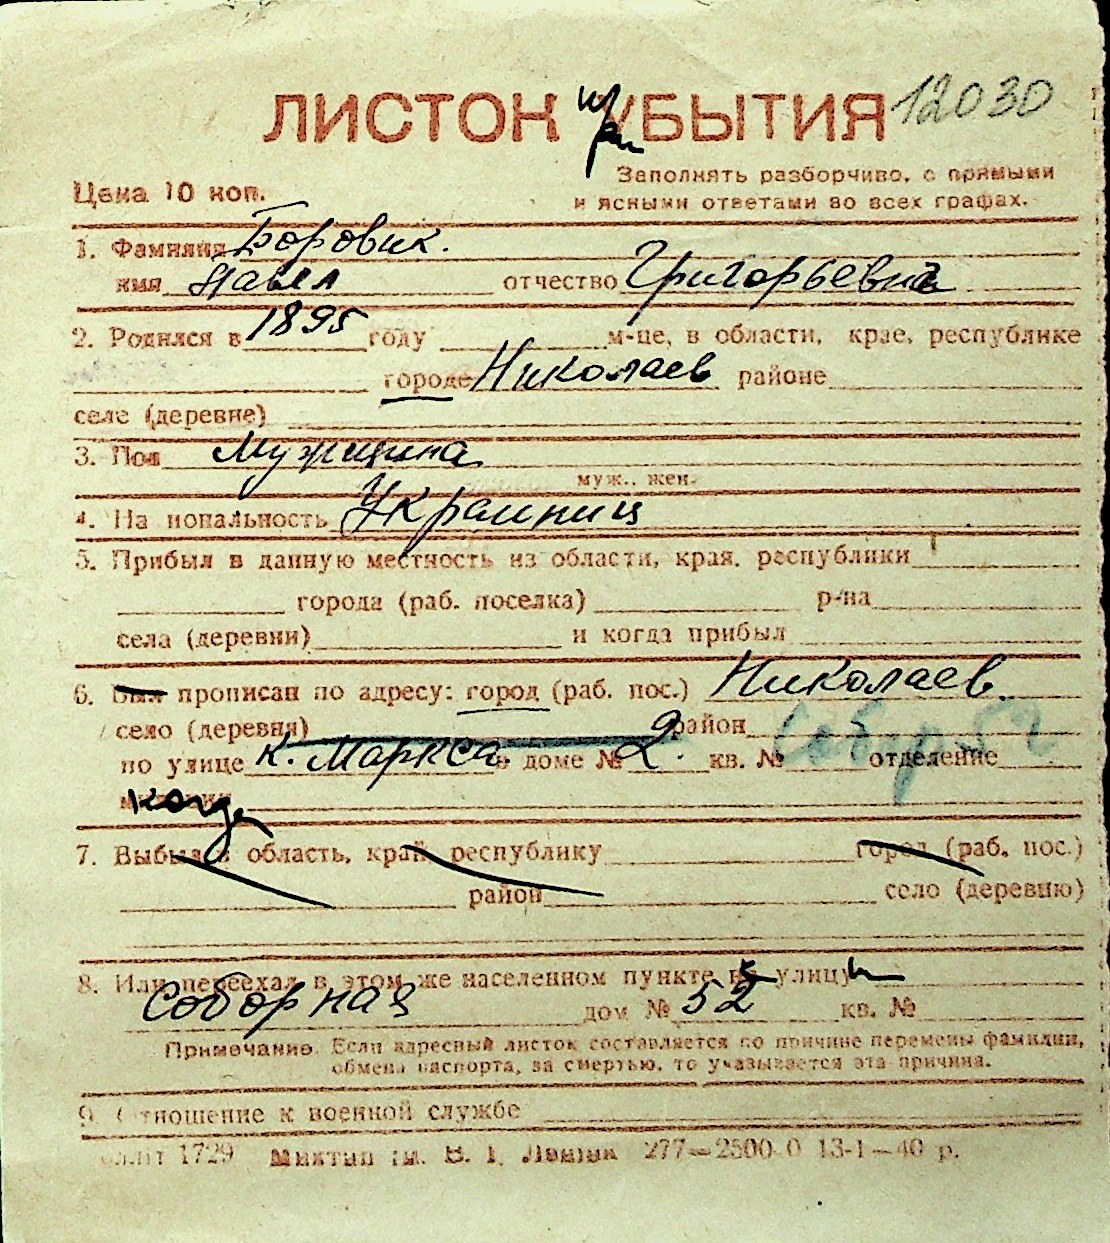 ЛИСТОК УБЫТИЯ 12030
при
Цена 10 коп.
Заполнять разборчиво, с прямыми
и ясными ответами во всех графах.
1. Фамилия Боровик.
имя Павел отчество Григорьевич
2. Родился в 1895 году м-це, в области, крае, республике
городе Николаев районе
селе (деревне)
3. Пол Мужщина
муж., жен.
4. На иональность Украиниц
5. Прибыл в данную местность из области, края, республики
города (раб. поселка) р-на
села (деревни) и когда прибыл
6. Был прописан по адресу: город (раб. пос.) Николаев
село (деревня) район
по улице К. Маркса. в доме № 2. кв. № отделение
7. Выбыл в область, край, республику город (раб. пос.)
район село (деревню)
8. Или переехал в этом же населенном пункте на улицу
Соборная дом № 52 кв. №
Примечание. Если адресный листок составляется по причине перемены фамилии,
обмена паспорта, за смертью, то указывается эта причина.
9. Отношение к военной службе
1729 277—2500 0 13-1—40 р.